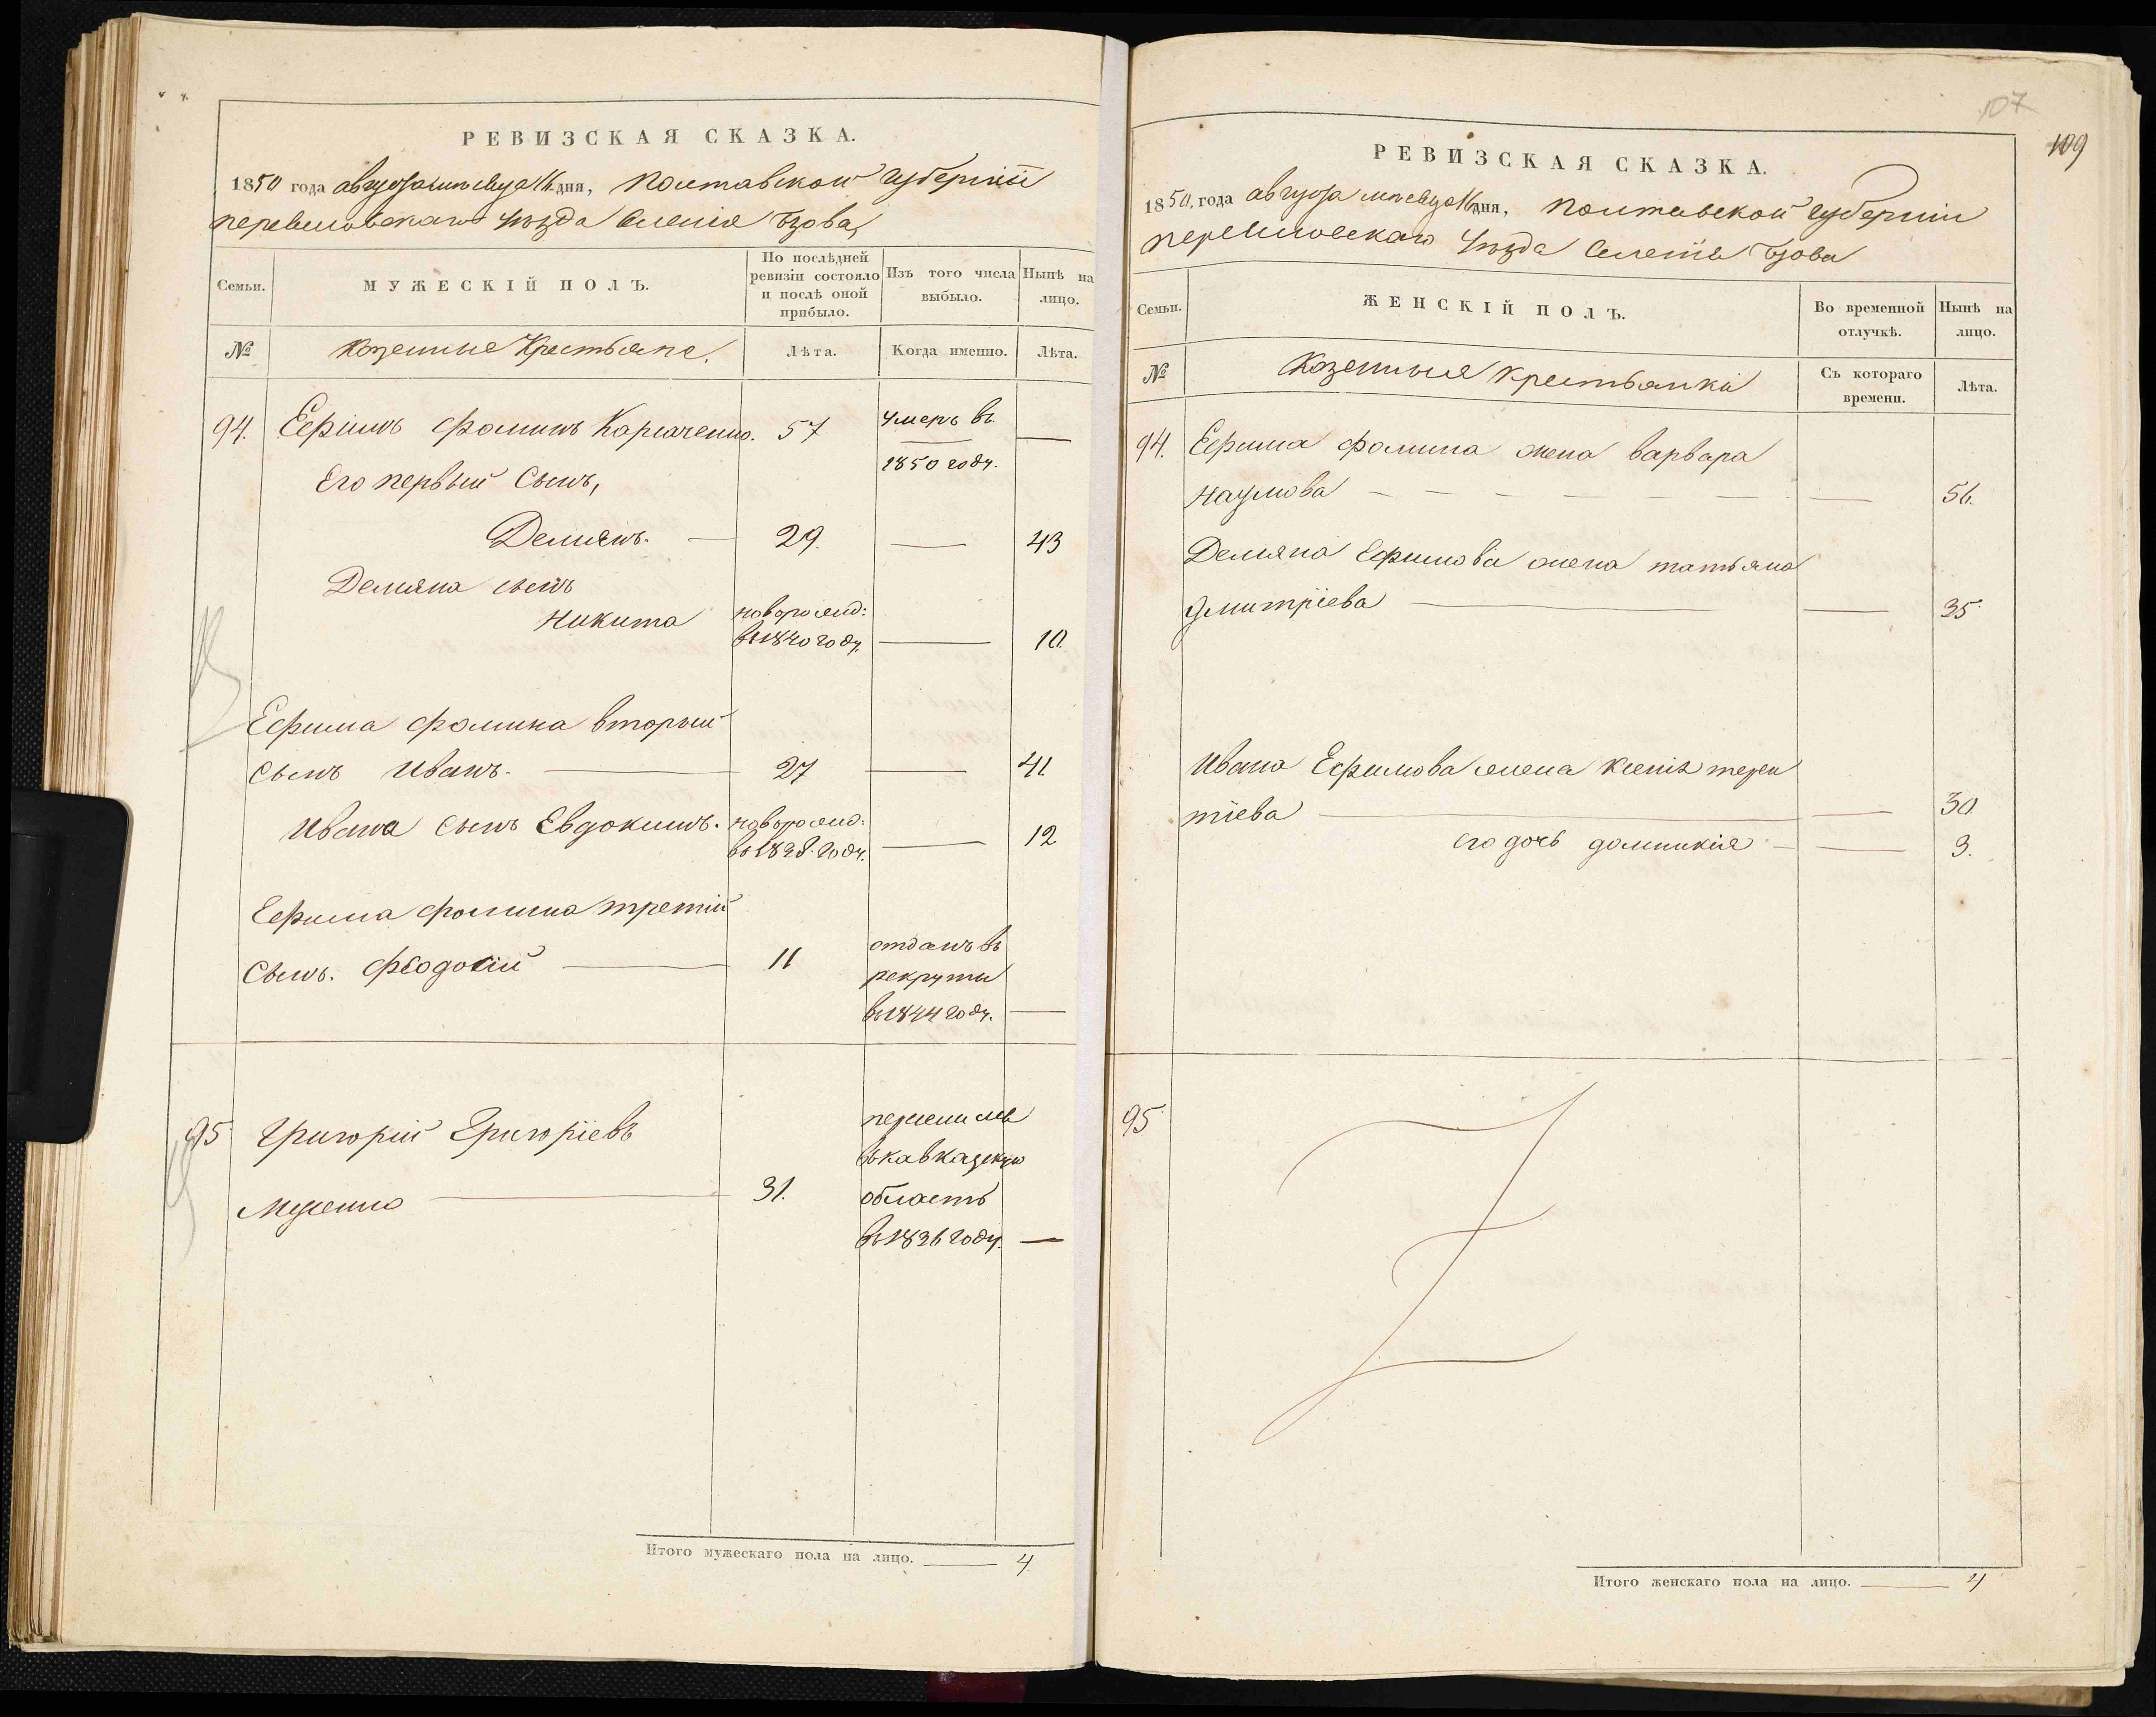 РЕВИЗСКАЯ СКАЗКА.
1850 года августа месяца 16 дня, Полтавской Губерніи
переяславскаго уѣзда Селенія Бзова,
Семьи.
МУЖЕСКІЙ ПОЛЪ.
По послѣдней ревизіи состояло и послѣ оной прибыло.
Изъ того числа выбыло.
Нынѣ на лицо.
№
Казенные Крестьяне.
Лѣта.
Когда именно.
Лѣта.
94. Ефимъ Фоминъ Харченко. 57 умеръ въ —
1850 году.
Его первый Сынъ,
Демянъ. — 29. — 43
Демяна сынъ
Никита новорожд: въ 1840 году. — 10.
Ефима Фомина вторый
Сынъ Иванъ. — 27 — 41
Ивана Сынъ Евдокимъ. новорожд: въ 1838 году. — 12
Ефима Фомина третій
Сынъ. Феодосій — 11 отданъ въ
рекруты
въ 1844 году. —
95 Григорій Григоріевъ
— 31.
перечисле
въ кавказскую
область
въ 1836 году. —
Итого мужескаго пола на лицо. — 4
107
109
РЕВИЗСКАЯ СКАЗКА.
1850, года августа месяца 16 дня, Полтавской губерніи
переяславскаго уѣзда Селенія Бзова
Семьи.
ЖЕНСКІЙ ПОЛЪ.
Во временной отлучкѣ.
Нынѣ на лицо.
№
Казенныя крестьянки
Съ котораго времени.
Лѣта.
94. Ефима Фомина жена варвара
Наумова — — — — — — — 56.
Демяна Ефимова жена татьяна
Дмитріева — — 35
Ивана Ефимова жена Ксенія терен
тіева — — 30
его дочь домникія — — 3.
95
Итого женскаго пола на лицо. — 4